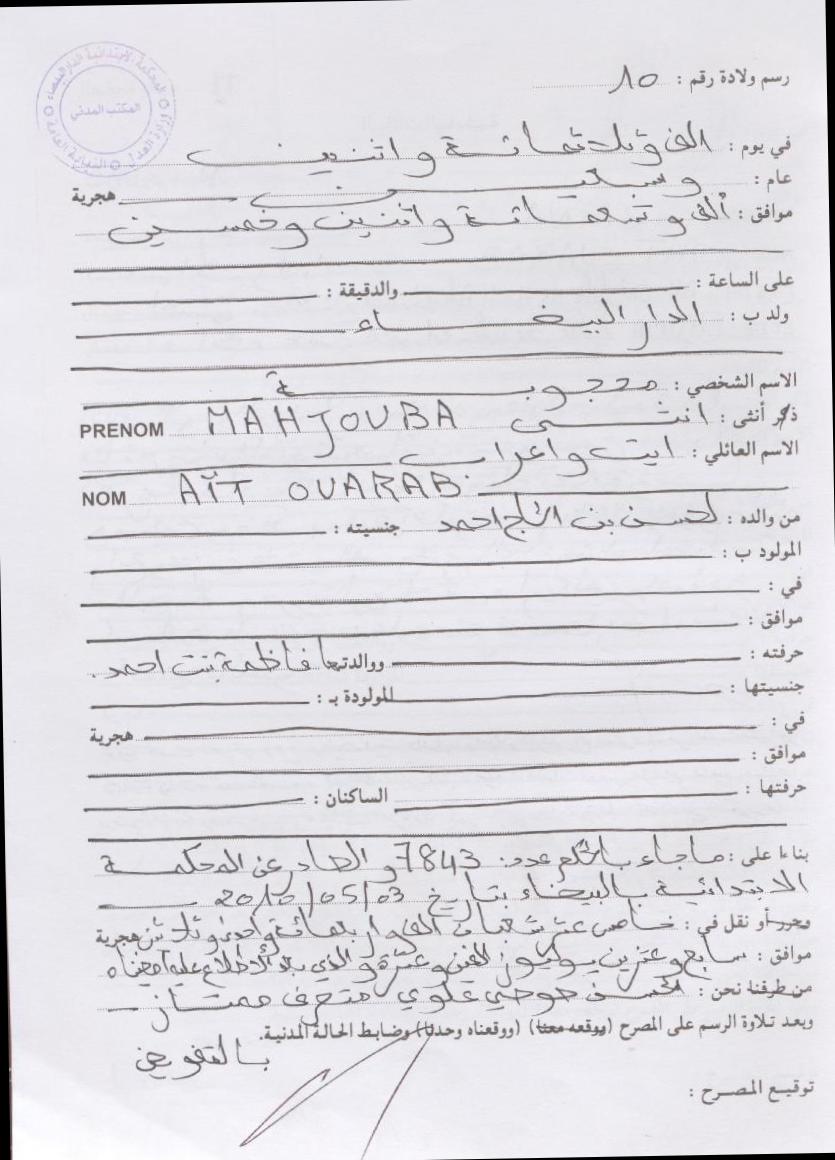 المحكمة الابتدائية الدار البيضاء
المكتب المدني
وزارة العدل
النيابة العامة
رسم ولادة رقم : 10
في يوم : الف وثلاثمائة واثنين
عام : وسبعين هجرية
موافق : ألف وتسعمائة واثنين وخمسين
على الساعة : والدقيقة :
ولد ب : الدار البيضاء
الاسم الشخصي : محجوبة
ذكر أنثى : انثى PRENOM MAHJOUBA
الاسم العائلي : ايت واعراب
NOM AÏT OUARAB
من والده : لحسن بن الحاج احمد جنسيته :
المولود ب :
في :
موافق :
حرفته : ووالدتها فاظمة بنت احمد
جنسيتها : المولودة بـ :
في : هجرية
موافق :
حرفتها : الساكنان :
بناءا على : ماجاء بالحكم عدد: 7843 والصادر عن المحكمة
الابتدائية بالبيضاء بتاريخ 2010/05/03
وحرر أو نقل في : خامس عشر شعبان الف واربعمائة وواحد وثلاثين هجرية
موافق : سابع وعشرين يوليوز الفين وعشرة والذي بعد الاطلاع عليه أمضيناه
من طرفنا نحن : لحسن علوي متصرف ممتاز
وبعد تلاوة الرسم على المصرح (ووقعه معنا) (ووقعناه وحدنا) وضابط الحالة المدنية.
بالتفويض
توقيع المصرح :